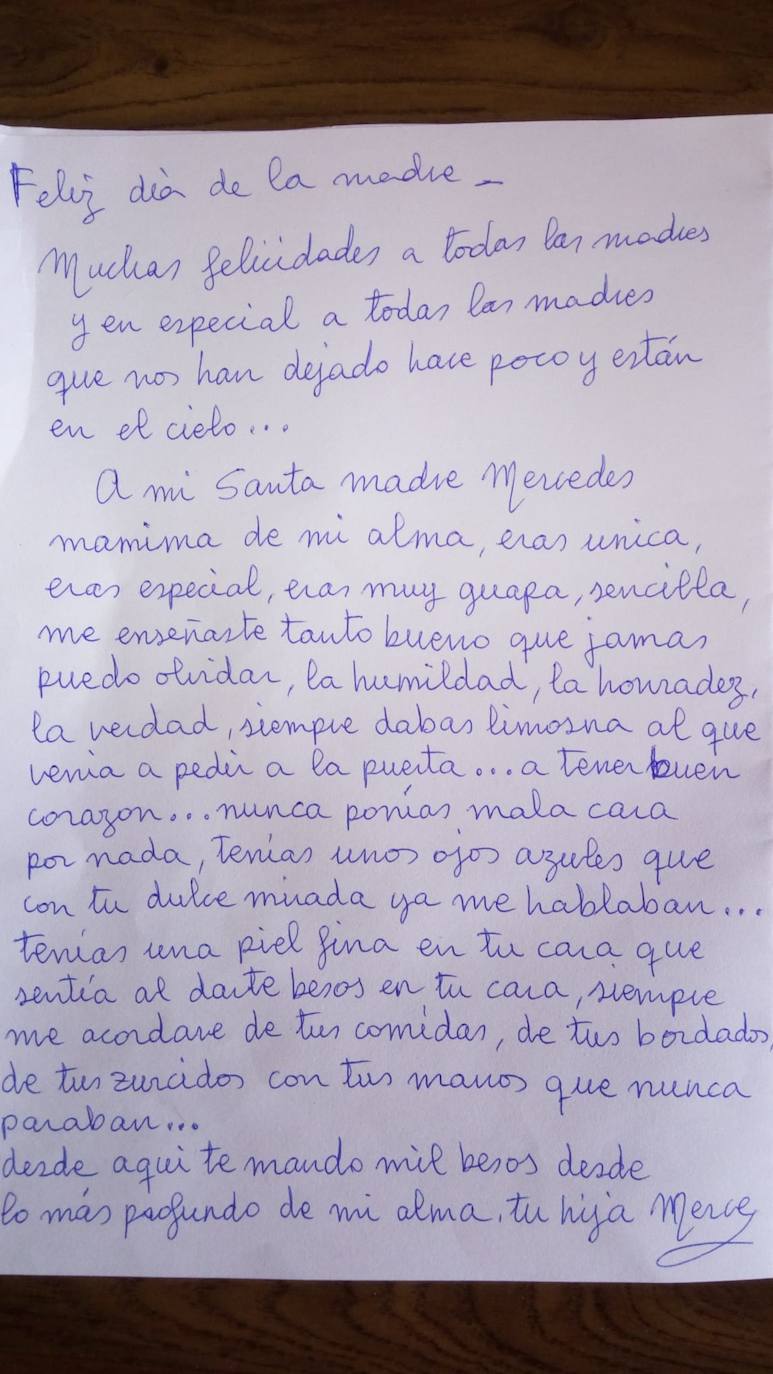 Feliz dia de la madre -
Muchas felicidades a todas las madres
y en especial a todas las madres
que nos han dejado hace poco y están
en el cielo...
A mi Santa madre Mercedes
mamima de mi alma, eras unica,
eras especial, eras muy guapa, sencilla,
me enseñaste tanto bueno que jamas
puedo olvidar, la humildad, la honradez,
la verdad, siempre dabas limosna al que
venia a pedir a la puerta... a tener buen
corazon... nunca ponías mala cara
por nada, tenías unos ojos azules que
con tu dulce mirada ya me hablaban...
tenías una piel fina en tu cara que
sentía al darte besos en tu cara, siempre
me acordare de tus comidas, de tus bordados,
de tus zurcidos con tus manos que nunca
paraban...
desde aqui te mando mil besos desde
lo más profundo de mi alma. tu hija Merce